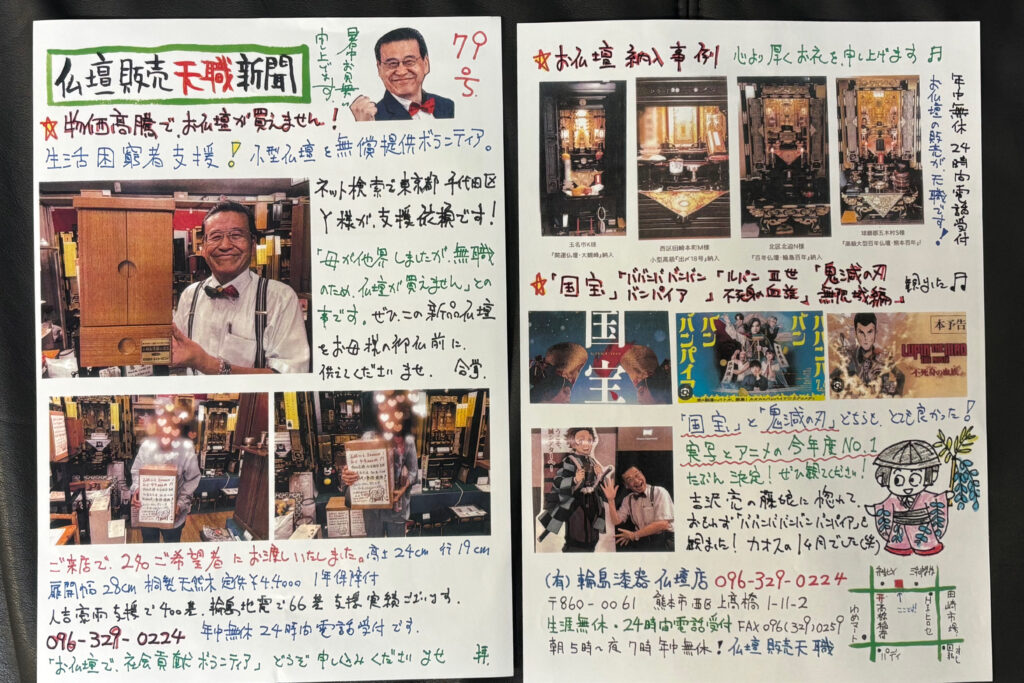 仏壇販売天職新聞
暑中お見舞い
申し上げます。
79
号
☆物価高騰で、お仏壇が買えません!
生活困窮者支援!小型仏壇を無償提供ボランティア。
ネット検索で東京都千代田区
Y様が、支援依頼です!
「母が他界しましたが、無職
のため、仏壇が買えません」との
事です。ぜひ、この新品仏壇
をお母様の御仏前に、
供えてくださいませ、合掌
ご来店で、2名ご希望者にお渡しいたしました。高さ24cm 行19cm
扉開幅28cm 桐製天然木 定価¥44000 1年保障付
人吉豪雨支援で400基、輪島地震で66基 支援実績ございます。
096-329-0224 年中無休24時間電話受付です。
「お仏壇で、社会貢献ボランティア」どうぞ申し込みくださいませ 拝.
☆お仏壇納入事例 心より厚くお礼を申し上げます♬
年中無休 24時間電話受付
お仏壇の販売が、天職です!
玉名市K様
「開運仏壇・大観峰」納入
西区田崎本町M様
小型高級「出〆18号」納入
北区北迫N様
「百年仏壇・輪島百年」納入
球磨郡五木村S様
「高級大型百年仏壇・熊本百年」
☆「国宝」「ババンババンバン バンパイア」「ルパン三世 不死身の血族」「鬼滅の刃 無限城編」観ました♬
国宝
ババンババンバンバンパイア
本予告
LUPIN THE IIIRD
不死身の血族
「国宝」と「鬼滅の刃」どちらも、とても良かった!
実写とアニメの今年度No.1
たぶん決定!ぜひ観てください!
吉沢亮の藤娘に惚れて
おもわず「ババンババンバンバンパイア」も
観ました!カオスの1ヶ月でした(笑)
(有)輪島漆器仏壇店 096-329-0224
〒860-0061 熊本市西区上高橋1-11-2
生涯無休・24時間電話受付 FAX 096(329)0259
朝5時〜夜7時年中無休!仏壇販売天職
ここです
田崎市場